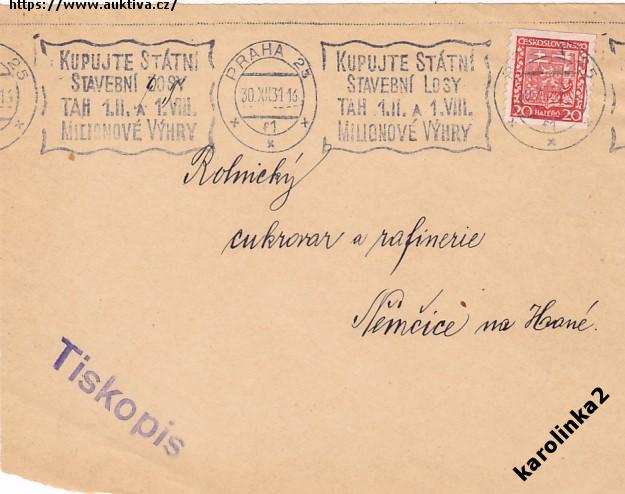 https://www.auktiva.cz/
KUPUJTE STÁTNÍ
STAVEBNÍ LOSY
TAH 1.II. A 1.VIII.
MILIONOVÉ VÝHRY
PRAHA 25
30.XII.31-16
KUPUJTE STÁTNÍ
STAVEBNÍ LOSY
TAH 1.II. A 1.VIII.
MILIONOVÉ VÝHRY
ČESKOSLOVENSKO
20 HALÉŘŮ 20
Rolnický
cukrovar a rafinerie
Němčice na Hané.
Tiskopis
karolinka2